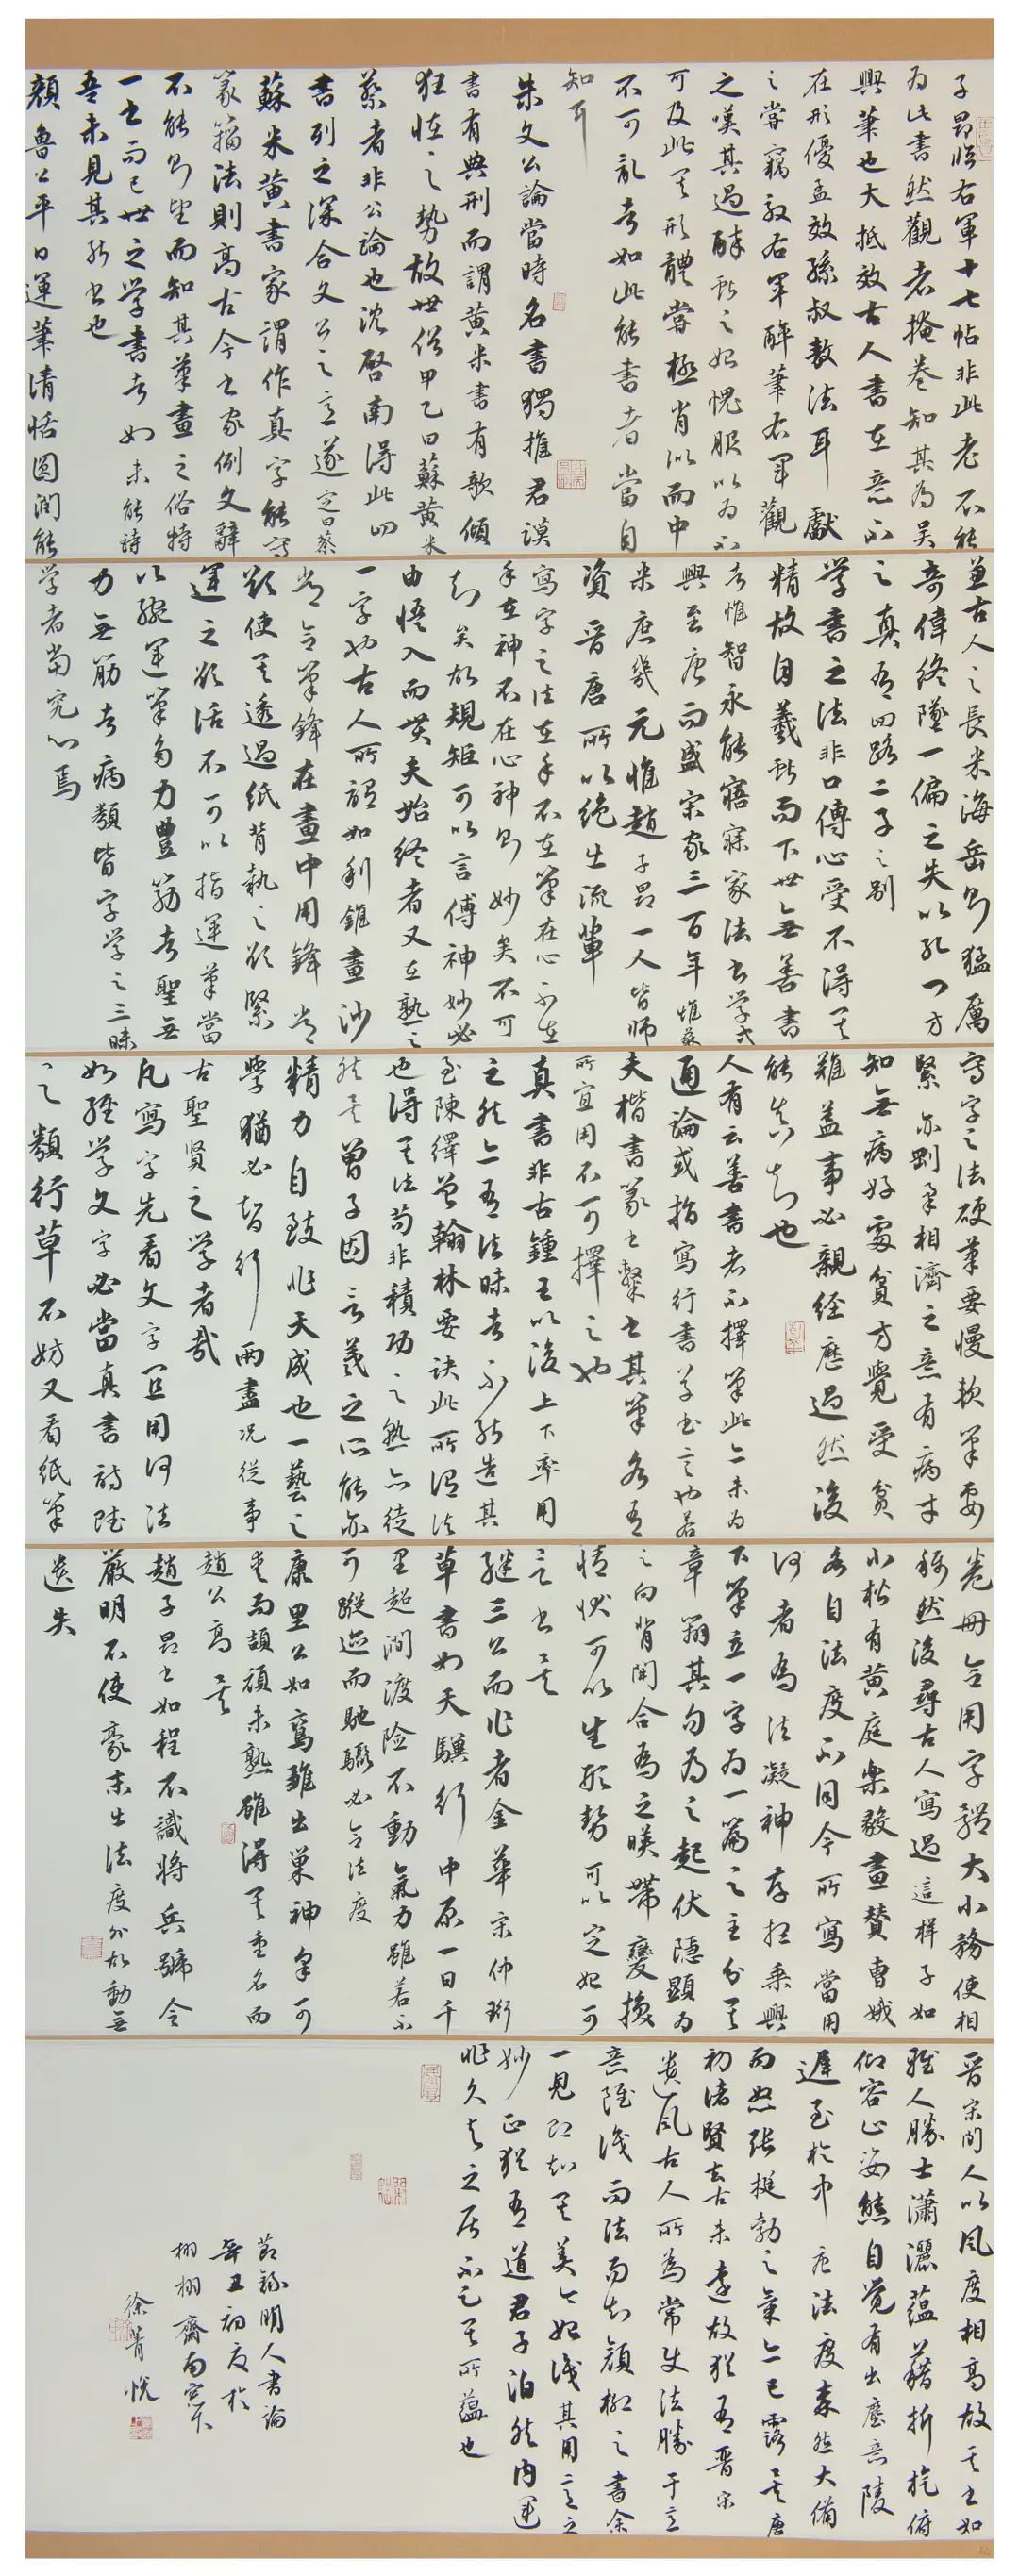 子昂临右軍十七帖非此老不能
為此書然觀者掩卷知其為吴
興筆也大抵效古人書在意不
在形優孟效孫叔敖法耳獻
之嘗竊效右軍醉筆右軍觀
之嘆其過醉獻之始愧服以為不
可及此其形體嘗極肖似而中
不可亂者如此能書者當自
知耳
朱文公論當時名書獨推君謨
書有典刑而謂黄米書有欹傾
狂怪之勢故世俗甲乙曰蘇黄米
蔡者非公論也沈啓南得此四
書列之深合文公之意遂定曰蔡
蘇米黄書家謂作真字能寫
篆籀法則高古今之書家例文辭
不能則望而知其筆畫之俗特
一書而已世之学書者如未能詩
吾未見其能書也
顔魯公平日運筆清恬圆潤能
兼古人之長米海岳則猛厲
奇偉終墮一偏之失以孔门方
之真有四路二子之别
学書之法非口傳心受不得其
精故自羲獻而下世無善書
者惟智永能寤寐家法書学式
興至唐而盛宋家三百年惟蘇
米庶幾元惟趙子昂一人皆師
資晋唐所以绝出流輩
寫字之法在手不在筆在心不在
手在神不在心神則妙矣不可
知矣故規矩可以言傳神妙必
由悟入而其夫始终者又在熟之
一字也古人所謂如利錐畫沙
常令筆鋒在畫中用鋒常
欲使其透過纸背執之欲緊
運之欲活不可以指運筆當
以腕運筆多力豐筋者聖無
力無筋者病類皆字学之三昧
学者當究心焉
寫字之法硬筆要慢軟筆要
緊亦剛柔相濟之意有病才
知無病好處貧方覺受貧
難盖事必親经歷過然後
能真知也
人有云善書者不擇筆此亦未為
通論或指寫行書草書言也若
夫楷書篆書繫書其筆各有
所宜用不可擇之也
真書非古鍾王以後上下率用
之然亦有法昧者不能造其
至陳繹曾翰林要訣此所謂法
也得其法苟非積功之熟亦徒
然其曾子固言羲之所能亦
精力自致非天成也一藝之
學猶必智行兩盡况從事
古聖賢之学者哉
凡寫字先看文字宜用何法
如經学文字必當真書詩賦
之類行草不妨又看紙筆
卷冊合用字體大小務使相
稱然後尋古人寫過這樣子如
小楷有黄庭樂毅畫賛曹娥
各自法度不同今所寫當用
何者為法凝神存想乘興
下筆立一字為一篇之主分其
章辨其句為之起伏隱顯為
之向背開合為之暎帶變換
情狀可以生形勢可以定始可
言書矣
继三公而作者金華宋仲珩
草書如天驥行中原一日千
里超澗渡险不動氣力雖若不
可蹤迹而馳驟必合法度
康里公如鸞雛出巢神采可
愛而頡頏未熟雖得其重名而
趙公高矣
趙子昂書如程不識將兵號令
嚴明不使豪末出法度外故動無
遗失
晋宋間人以風度相高故其書如
雅人勝士瀟灑蕴藉折旋俯
仰容止姿態自觉有出塵意陵
遲至於中唐法度森然大備
而怒张挺勃之氣亦已露矣唐
初诸賢去古未遠故猶有晋宋
遺風古人所為常使法勝于意
意雖淺而法而知顔柳之書余
一見即知其美亦始淺其用意之
妙正猶有道君子泊然内運
非久與之居不知其所蕴也
節録明人書論
辛丑初夏於
栩栩齋南窗下
徐菁悦